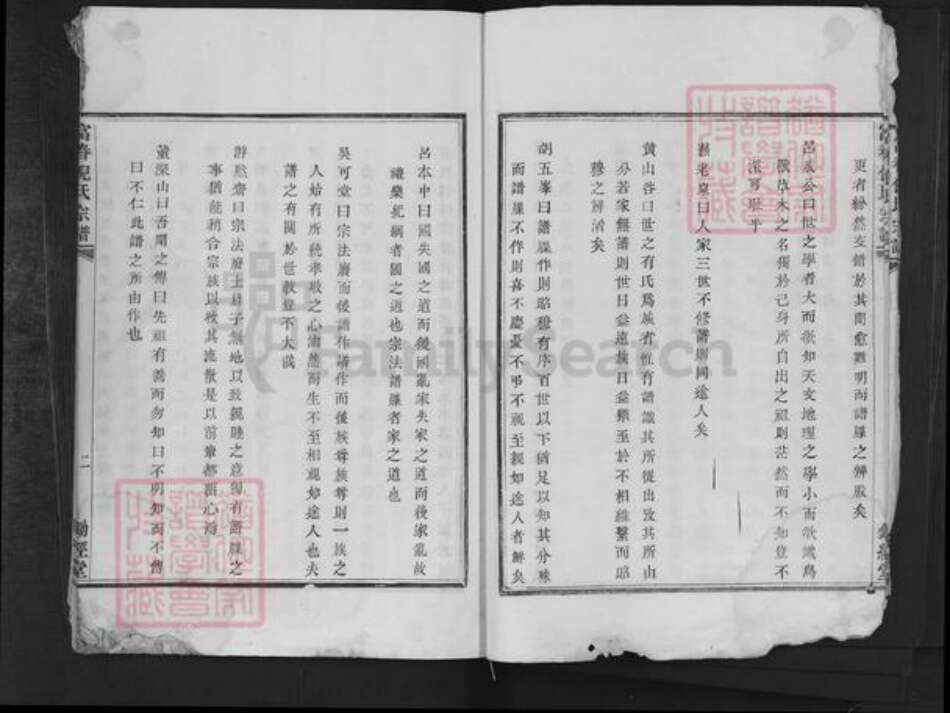 更者紛然交錯於其間愈難明而譜牒之辨嚴矣
呂成公曰世之學者大而欲知天文地理之學小而欲識鳥
獸草木之名獨於己身所自出之祖則茫然而不知豈不
深可恥乎
蘇老泉曰人家三世不修譜則同途人矣
黃山谷曰世之有氏為族者惟有譜識其所從出攷其所由
分若家無譜則世日益遠族日益繁至於不相維繫而昭
穆之辨淆矣
胡五峯曰譜牒作則昭穆有序百世以下猶足以知其分殊
而譜牒不作則喜不慶憂不弔不視至親如途人者鮮矣
富春倪氏宗譜
二
勤經堂
呂本中曰國失國之道而後國亂家失家之道而後家亂故
禮樂紀綱者國之道也宗法譜牒者家之道也
吳可堂曰宗法廢而後譜作譜作而後族尊族尊則一族之
人始有所統孝敬之心油然而生不至相視如途人也夫
譜之有關於世教豈不大哉
許 齋曰宗法廢上目子無地以致親睦之意獨有譜牒之
事猶能稍合宗族以收其渙散是以前輩都留心焉
董深山曰吾聞之傳曰先祖有善而勿知曰不明知而不傳
曰不仁此譜之所由作也
FamilySearch